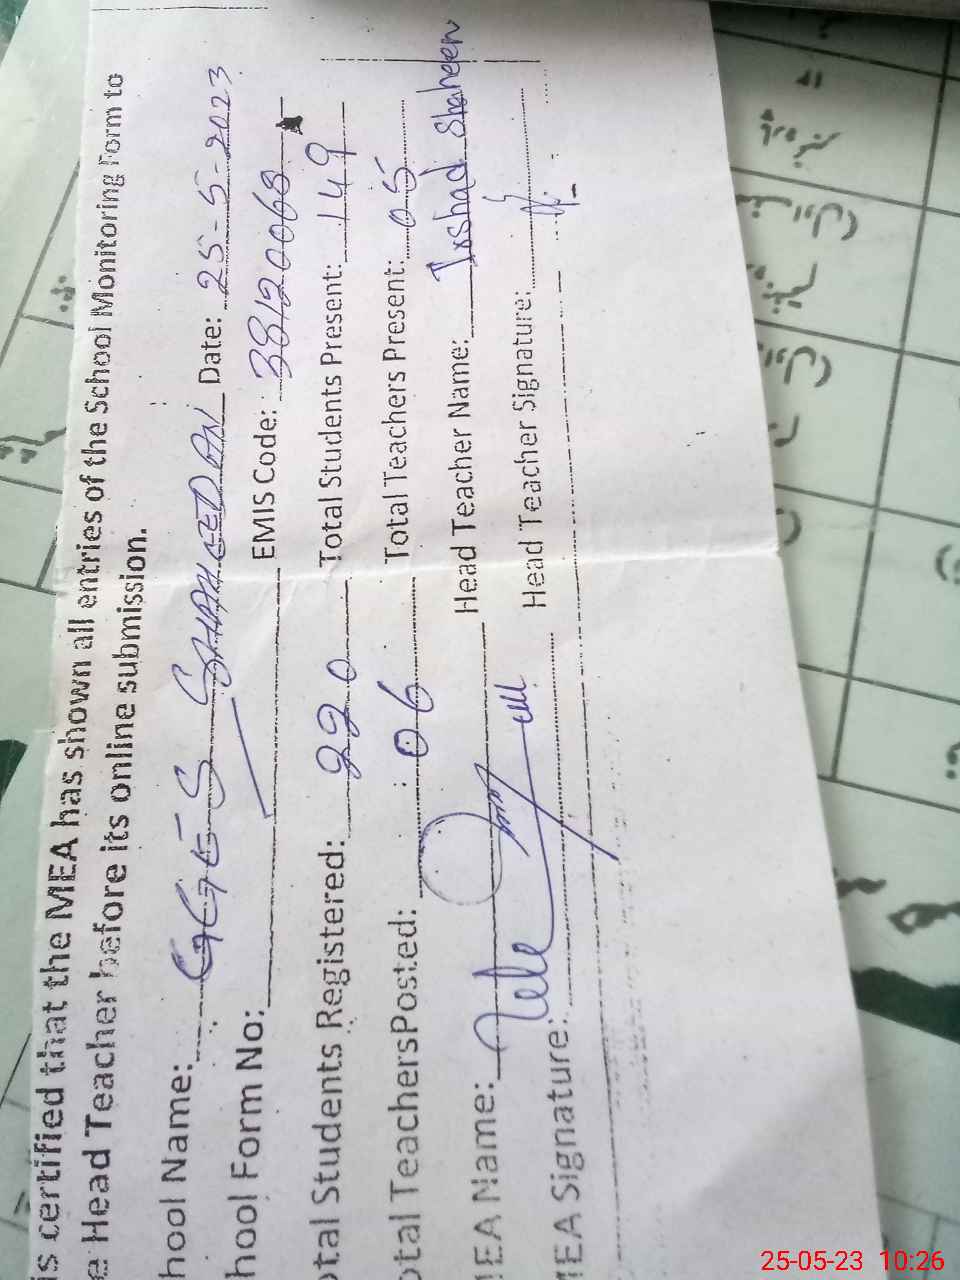 is certified that the MEA has shown all entries of the School Monitoring Form to
e Head Teacher before its online submission.
hool Name: GGES SHAHEEDAN Date: 25-5-2023
hool Form No: EMIS Code: 38120068
otal Students Registered: 220 Total Students Present: 149
otal TeachersPosted: 06 Total Teachers Present: 05
MEA Name: Head Teacher Name: Irshad Shaheen
MEA Signature: Head Teacher Signature:
25-05-23 10:26